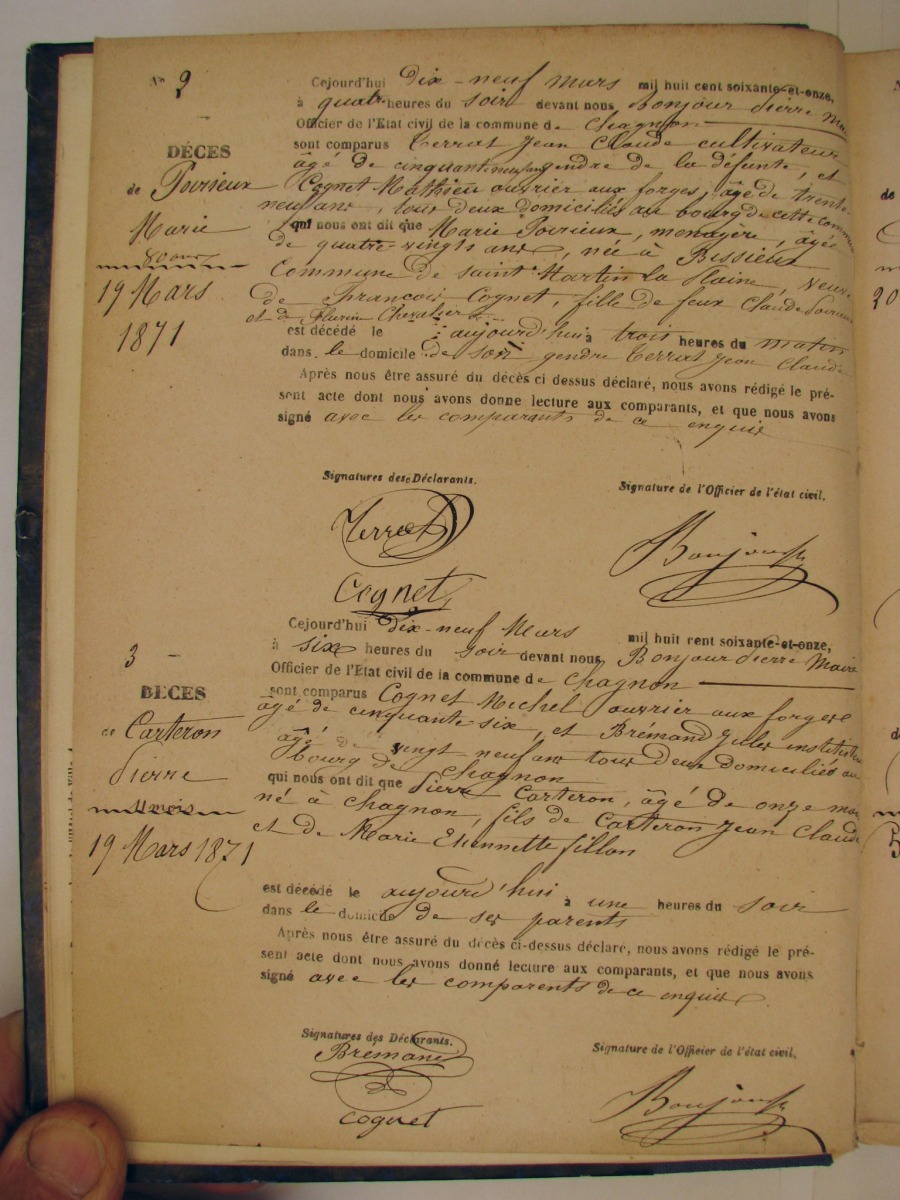 No 2
Cejourd'hui dix-neuf mars mil huit cent soixante-et-onze,
à quatre heures du soir devant nous Bonjour Pierre Maire
Officier de l'Etat civil de la commune de Chagnon
sont comparus Terrat Jean Claude cultivateur
âgé de cinquante neuf ans gendre de la défunte, et
Cognet Mathieu ouvrier aux forges, âgé de trente
neuf ans, tous deux domiciliés au bourg de cette commune
qui nous ont dit que Marie Poirieux, menagère, âgée
de quatre-vingts ans, née à Bissieux
Commune de Saint Martin la Plaine, Veuve
de François Cognet, fille de feux Claude Poirieux
et de Fleurie Chevalier
est décédé le aujourd'hui à trois heures du matin
dans le domicile de son gendre Terrat Jean Claude
Après nous être assuré du décès ci dessus déclaré, nous avons rédigé le pré-
sent acte dont nous avons donné lecture aux comparants, et que nous avons
signé avec les comparants de ce enquis
DÉCES
de Poirieux
Marie
80 ans
19 Mars
1871
Signatures des Déclarants.
Signature de l'Officier de l'état civil.
Terrat
Bonjour
Cognet
3
Cejourd'hui dix-neuf Mars mil huit cent soixante-et-onze,
à six heures du soir devant nous Bonjour Pierre Maire
Officier de l'Etat civil de la commune de Chagnon
sont comparus Cognet Michel ouvrier aux forges
âgé de cinquante-six, et Brémand Jules instituteur
âgé de vingt neuf ans tous deux domiciliés au
bourg de Chagnon
qui nous ont dit que Pierre Carteron, âgé de onze mois
né à Chagnon, fils de Carteron Jean Claude
et de Marie Etiennette fillon
est décédé le aujourd'hui à une heures du soir
dans le domicile de ses parents
Après nous être assuré du décès ci-dessus déclaré, nous avons rédigé le pré-
sent acte dont nous avons donné lecture aux comparants, et que nous avons
signé avec les comparents de ce enquis
DECES
de Carteron
Pierre
11 mois
19 Mars 1871
Signatures des Déclarants.
Signature de l'Officier de l'état civil.
Brémand
Bonjour
Cognet